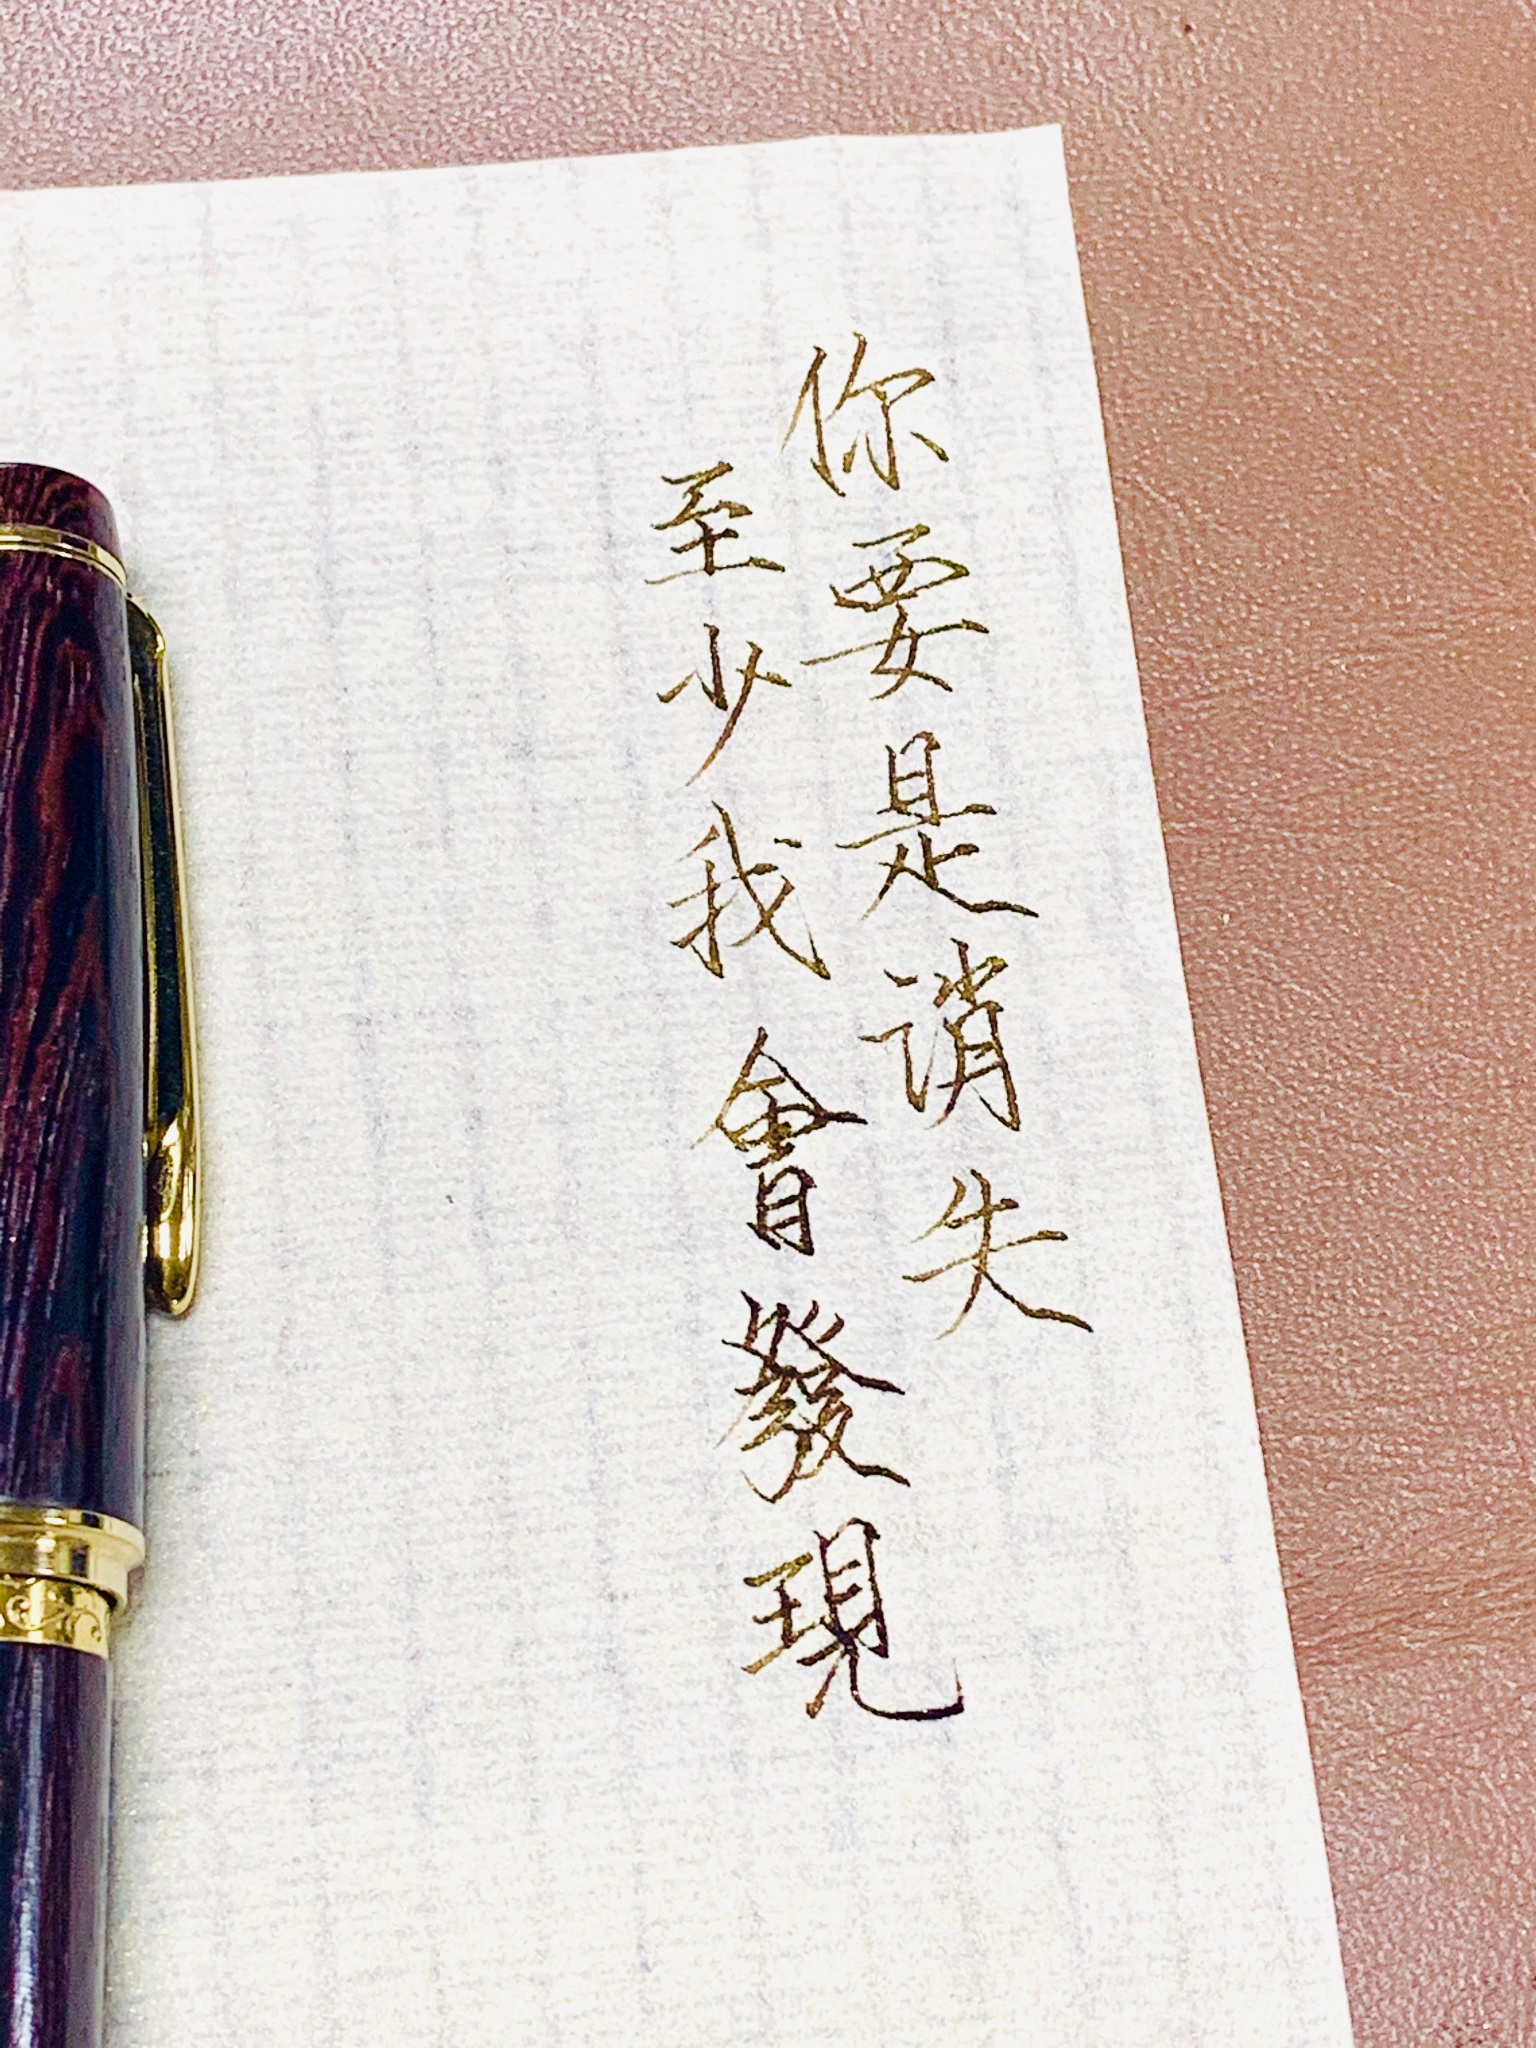 你要是消失
至少我會發現